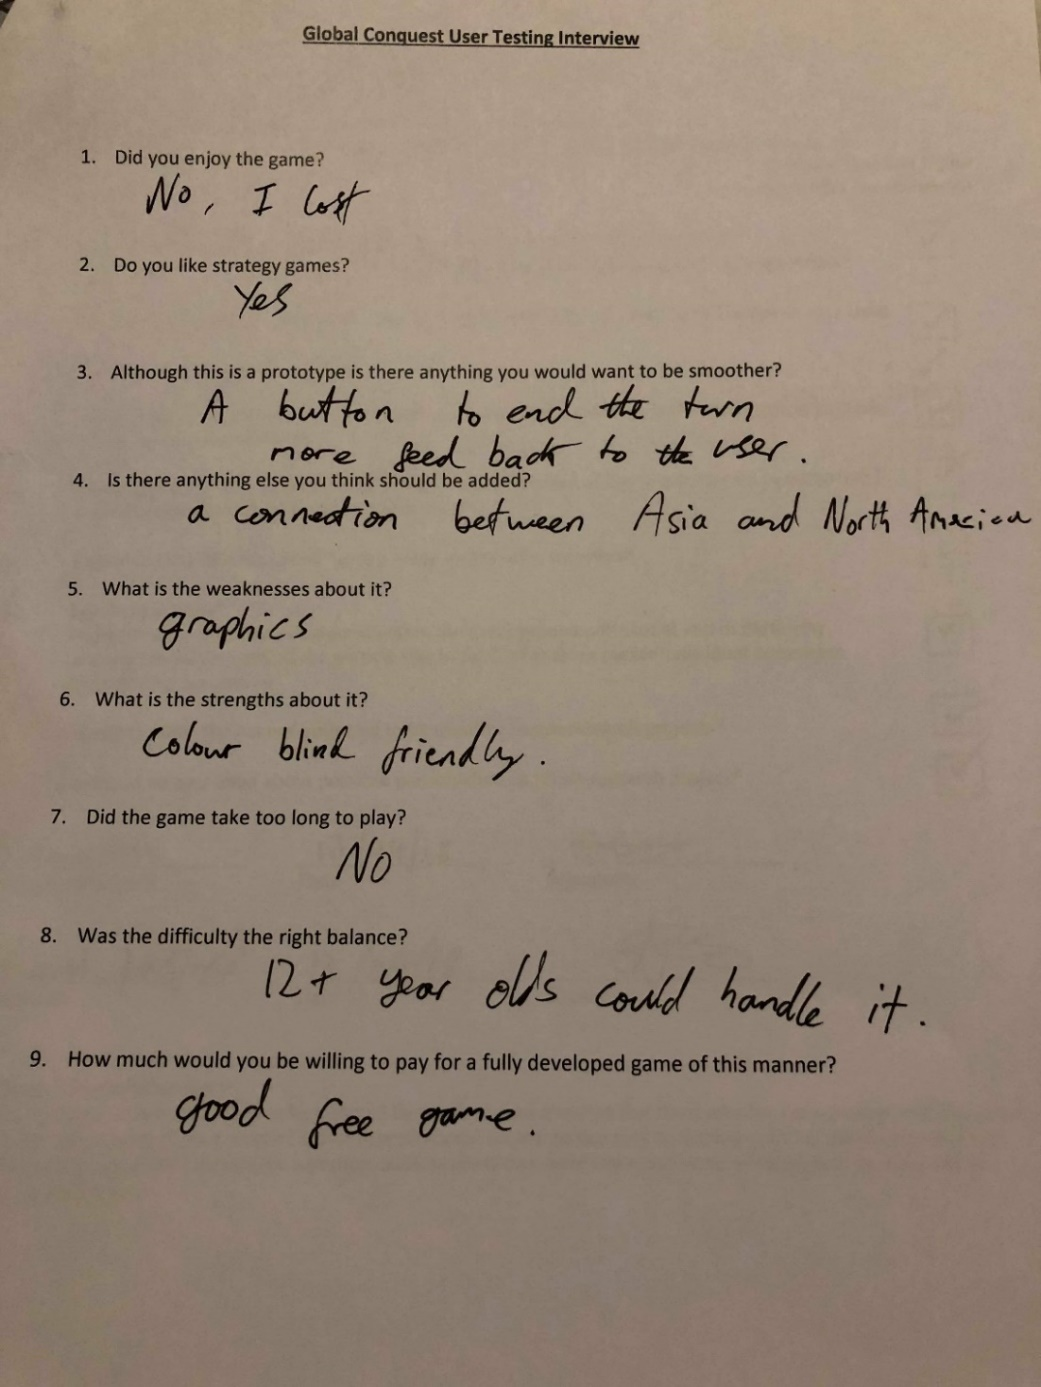 Global Conquest User Testing Interview
1. Did you enjoy the game?
No, I lost
2. Do you like strategy games?
Yes
3. Although this is a prototype is there anything you would want to be smoother?
A button to end the turn
more feed back to the user.
4. Is there anything else you think should be added?
a connection between Asia and North America
5. What is the weaknesses about it?
graphics
6. What is the strengths about it?
Colour blind friendly.
7. Did the game take too long to play?
No
8. Was the difficulty the right balance?
12+ year olds could handle it.
9. How much would you be willing to pay for a fully developed game of this manner?
good free game.